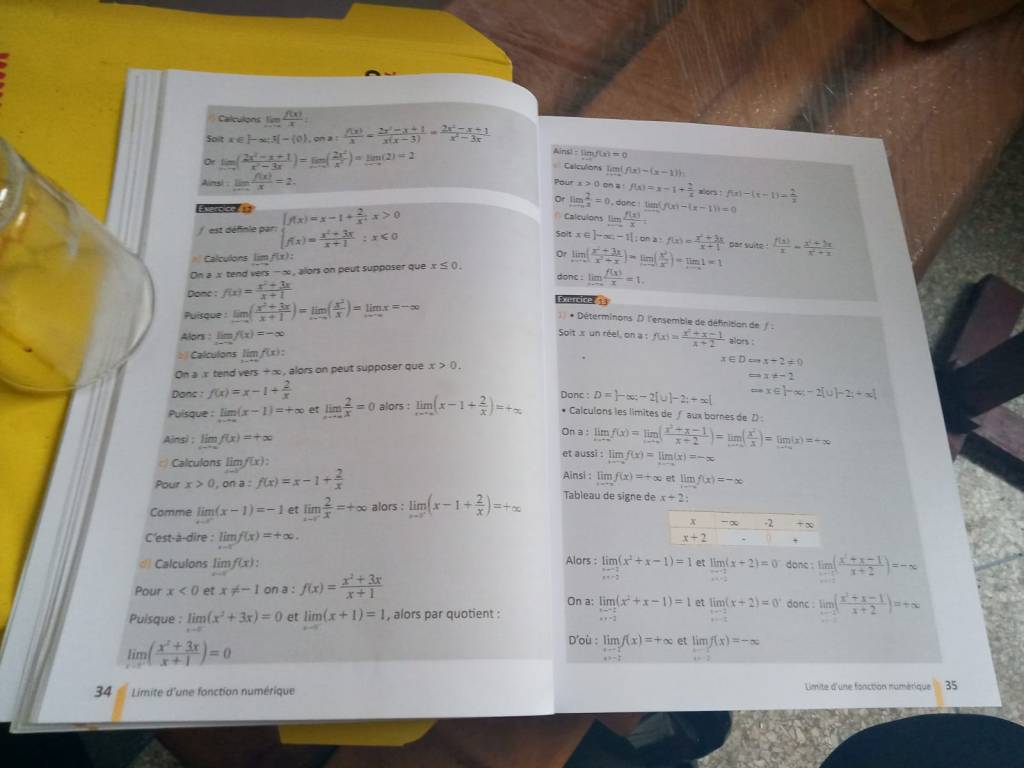 Calculons lim f(x)/x :
Soit x ∈ ]-∞; 3[ - {0}, on a : f(x)/x = (2x² - x + 1)/(x(x - 3)) = (2x² - x + 1)/(x² - 3x)
Or lim((2x² - x + 1)/(x² - 3x)) = lim(2x²/x²) = lim(2) = 2
Ainsi : lim f(x)/x = 2.
Exercice 12
f est définie par: { f(x) = x - 1 + 2/x ; x > 0
f(x) = (x² + 3x)/(x + 1) ; x ⩽ 0
a) Calculons lim f(x) :
On a x tend vers -∞, alors on peut supposer que x ≤ 0.
Donc : f(x) = (x² + 3x)/(x + 1)
Puisque : lim((x² + 3x)/(x + 1)) = lim(x²/x) = lim x = -∞
Alors : lim f(x) = -∞
b) Calculons lim f(x) :
On a x tend vers +∞, alors on peut supposer que x > 0.
Donc : f(x) = x - 1 + 2/x
Puisque : lim(x - 1) = +∞ et lim 2/x = 0 alors : lim(x - 1 + 2/x) = +∞
Ainsi : lim f(x) = +∞
c) Calculons lim f(x) :
Pour x > 0, on a : f(x) = x - 1 + 2/x
Comme lim(x - 1) = -1 et lim 2/x = +∞ alors : lim(x - 1 + 2/x) = +∞
C'est-à-dire : lim f(x) = +∞.
d) Calculons lim f(x) :
Pour x < 0 et x ≠ -1 on a : f(x) = (x² + 3x)/(x + 1)
Puisque : lim(x² + 3x) = 0 et lim(x + 1) = 1, alors par quotient :
lim((x² + 3x)/(x + 1)) = 0
34 Limite d'une fonction numérique
Ainsi : lim f(x) = 0
Calculons lim(f(x) - (x - 1)) :
Pour x > 0 on a : f(x) = x - 1 + 2/x alors : f(x) - (x - 1) = 2/x
Or lim 2/x = 0, donc : lim(f(x) - (x - 1)) = 0
f) Calculons lim f(x)/x :
Soit x ∈ ]-∞; -1[ ; on a : f(x) = (x² + 3x)/(x + 1) par suite : f(x)/x = (x² + 3x)/(x² + x)
Or lim((x² + 3x)/(x² + x)) = lim(x²/x²) = lim 1 = 1
donc : lim f(x)/x = 1.
Exercice 13
1) • Déterminons D l'ensemble de définition de f :
Soit x un réel, on a : f(x) = (x² + x - 1)/(x + 2) alors :
x ∈ D ⟺ x + 2 ≠ 0
⟺ x ≠ -2
⟺ x ∈ ]-∞; -2[ ∪ ]-2; +∞[
Donc : D = ]-∞; -2[ ∪ ]-2; +∞[
• Calculons les limites de f aux bornes de D :
On a : lim f(x) = lim((x² + x - 1)/(x + 2)) = lim(x²/x) = lim(x) = +∞
et aussi : lim f(x) = lim(x) = -∞
Ainsi : lim f(x) = +∞ et lim f(x) = -∞
Tableau de signe de x + 2 :
x -∞ -2 +∞
x + 2 - 0 +
Alors : lim(x² + x - 1) = 1 et lim(x + 2) = 0⁻ donc : lim((x² + x - 1)/(x + 2)) = -∞
On a: lim(x² + x - 1) = 1 et lim(x + 2) = 0⁺ donc : lim((x² + x - 1)/(x + 2)) = +∞
D'où : lim f(x) = +∞ et lim f(x) = -∞
Limite d'une fonction numérique 35